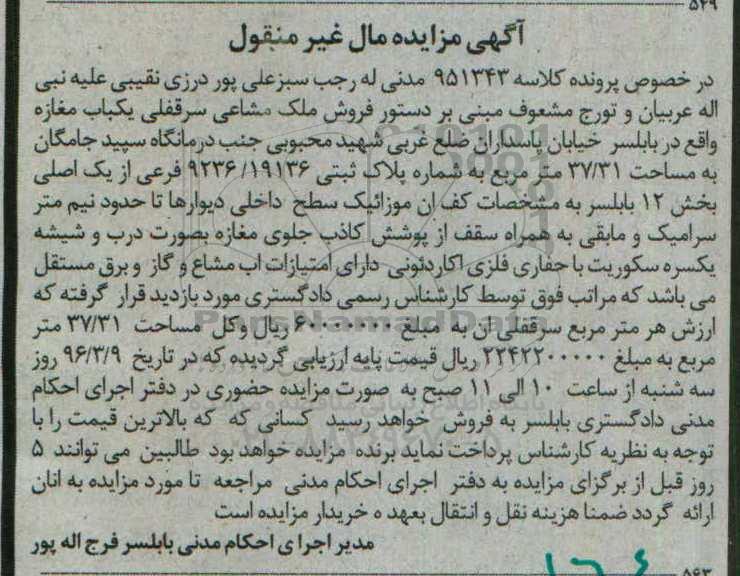 ۵۴۹
آگهی مزایده مال غیر منقول
در خصوص پرونده کلاسه ۹۵۱۳۴۳ مدنی له رجب سبزعلی پور درزی نقیبی علیه نبی
اله عربیان و تورج مشعوف مبنی بر دستور فروش ملک مشاعی سرقفلی یکباب مغازه
واقع در بابلسر خیابان پاسداران ضلع غربی شهید محبوبی جنب درمانگاه سپید جامگان
به مساحت ۳۷/۳۱ متر مربع به شماره پلاک ثبتی ۹۲۳۶/۱۹۱۳۶ فرعی از یک اصلی
بخش ۱۲ بابلسر به مشخصات کف ان موزائیک سطح داخلی دیوارها تا حدود نیم متر
سرامیک و مابقی به همراه سقف از پوشش کاذب جلوی مغازه بصورت درب و شیشه
یکسره سکوریت با حفاری فلزی اکاردئونی دارای امتیازات اب مشاع و گاز و برق مستقل
می باشد که مراتب فوق توسط کارشناس رسمی دادگستری مورد بازدید قرار گرفته که
ارزش هر متر مربع سرقفلی ان به مبلغ ۶۰۰۰۰۰۰۰ ریال وکل مساحت ۳۷/۳۱ متر
مربع به مبلغ ۲۲۴۲۲۰۰۰۰۰ ریال قیمت پایه ارزیابی گردیده که در تاریخ ۹۶/۳/۹ روز
سه شنبه از ساعت ۱۰ الی ۱۱ صبح به صورت مزایده حضوری در دفتر اجرای احکام
مدنی دادگستری بابلسر به فروش خواهد رسید کسانی که که بالاترین قیمت را با
توجه به نظریه کارشناس پرداخت نماید برنده مزایده خواهد بود طالبین می توانند ۵
روز قبل از برگزای مزایده به دفتر اجرای احکام مدنی مراجعه تا مورد مزایده به انان
ارائه گردد ضمنا هزینه نقل و انتقال بعهد ه خریدار مزایده است
مدیر اجرا ی احکام مدنی بابلسر فرج اله پور
۵۶۳
ParsNamadData